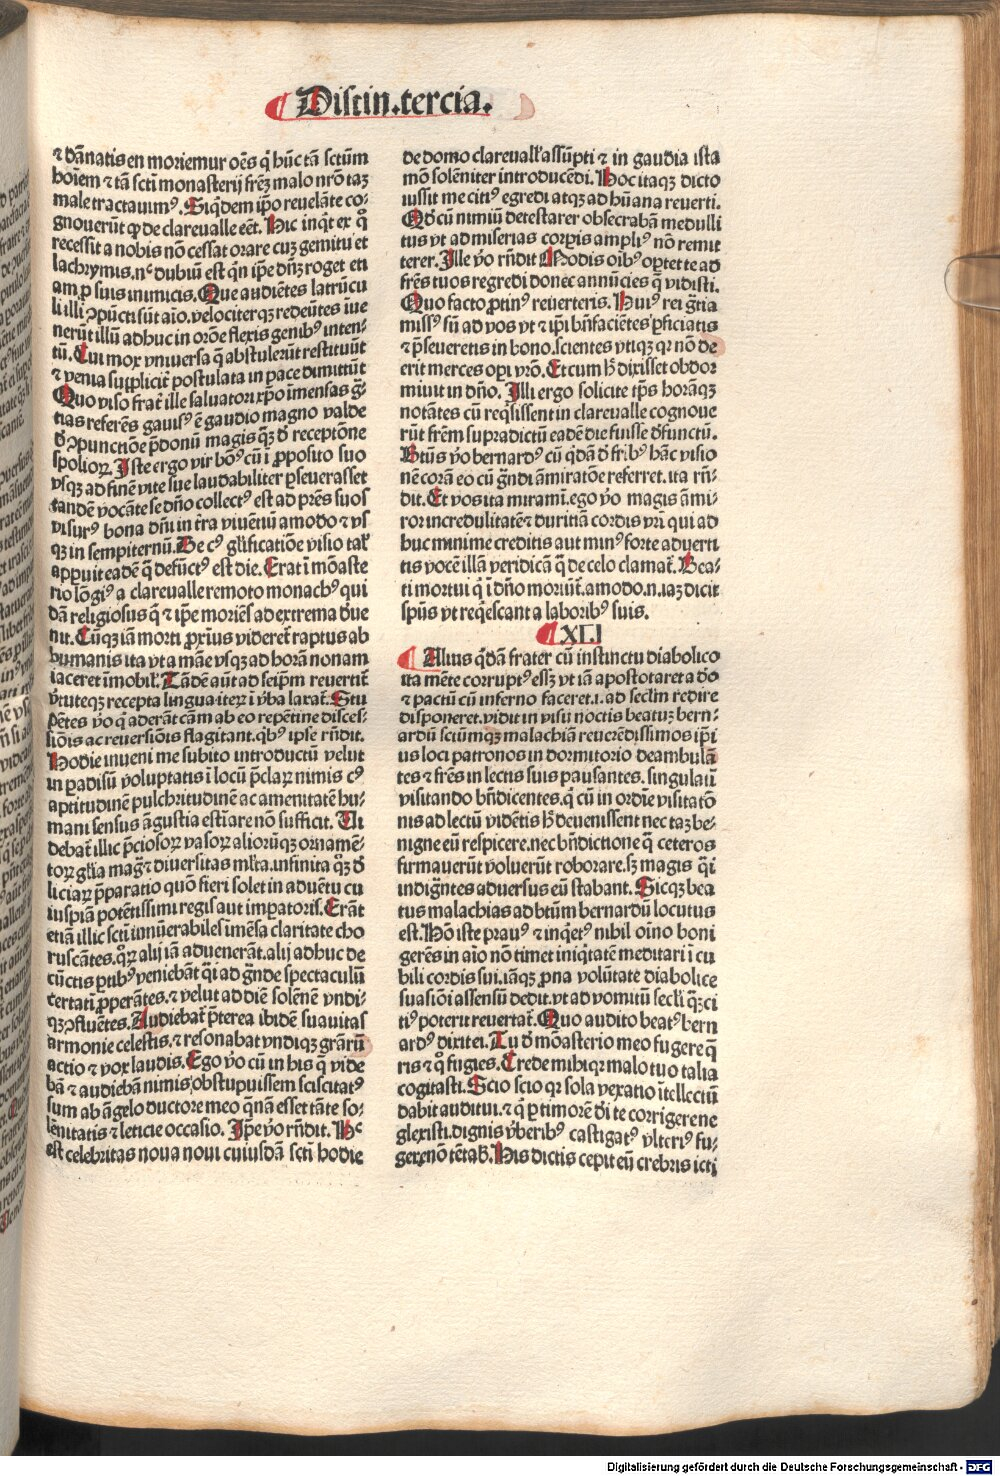 Distin.tercia.
⁊ dānatis en moriemur oēs q̇ hūc tā sctūm
hoīem ⁊ tā scti monasterij frēʒ malo nrō taʒ
male tractauimꝰ. Siqͥdem ipo reuelāte co-
gnouerūt ꝙ de clareualle eēt. Hic inqͥt ex q̊
recessit a nobis nō cessat orare cuʒ gemitu et
lachrymis. nᶜ dubiū est qͥn ipe dnʒ roget eti
am ꝓ suis inimicis. Que audiētes latrūcu
li illi ꝯpūcti sūt aīo. velociterqʒ redeūtes īue
nerūt illū adhuc in orōe flexis genibꝰ inten-
tū. Cui mox vniuersa q̄ abstulerūt restituūt
⁊ venia suppliciť postulata in pace dimittūt
Quo viso frať ille saluatori xp̄o īmensas gr̄-
tias referēs gauisꝰ ē gaudio magno valde
ď ꝯpunctiōe p̄donū magis qͣʒ ď receptōne
spolioꝝ. Iste ergo vir bōꝰ cū ī ꝓposito suo
vsqʒ ad finē vite sue laudabiliter ꝑseuerasset
tandē vocāte se dño collectꝰ est ad prēs suos
visurꝰ bona dñi in t̄ra viuētiū amodo ⁊ vs
qʒ in sempiternū. De cꝰ glīficatiōe visio tať
appuit eadē q̄ defūctꝰ est die. Erat ī mōaste
rio lōgiꝰ a clareualle remoto monachꝰ qui
dā religiosus q̄ ⁊ ipe moriēs ad extrema ďue
nit. Cūqʒ iam morti ꝓxiꝰ videreť raptus ab
humanis ita vt a māe vsqʒ ad horā nonam
iaceret īmobiť. Tādē aūt ad seipm̄ reuertit᷑
v̄tuteqʒ recepta lingua iteꝝ ī v̄ba laxať. Stu
pētes v̄o q̇ aderāt cām ab eo repētine disces-
siōis ac reuersiōis flagitant. qͥbꝰ ipse rn̄dit.
Hodie inueni me subito introductū velut
in padisū voluptatis ī locū p̄claꝝ nimis cꝰ
aptitudinē pulchritudinē ac amenitatē hu-
mani sensus āgustia estīare nō sufficit. Ui
debať illic p̄ciosoꝝ vasoꝝ alioꝝqʒ ornamē-
toꝝ glīa magͣ ⁊ diuersitas mlťa. infinita qͣʒ ď
liciaꝝ p̄paratio quō fieri solet in aduētu cu
iuspiā potētissimi regis aut imꝑatoris. Erāt
etiā illic scti innūerabiles imēsa claritate cho
ruscātes. qͦꝝ alij iā aduenerāt. alij adhuc de
cūctis ꝑtibꝰ veniebāt qͣi ad grᷓnde spectaculū
certati ꝓperātes. ⁊ velut ad diē solēnē vndi-
qʒ ꝯfluētes. Audiebať p̄terea ibidē suauitas
armonie celestis. ⁊ resonabat vndiqʒ grārū
actio ⁊ vox laudis. Ego v̄o cū in his q̄ vide
bā ⁊ audiebā nimis obstupuissem sciscitatꝰ
sum ab āgelo ductore meo qͣnā esset tāte so-
lēnitatis ⁊ leticie occasio. Ipe v̄o rn̄dit. Hᶜ
est celebritas noua noui cuiusdā scti hodie
de domo clareualł assūpti ⁊ in gaudia ista
mō solēniter introducēdi. Hoc itaqʒ dicto
iussit me citiꝰ egredi atqʒ ad hūana reuerti.
Qďcū nimiū detestarer obsecrabā medulli
tus vt ad miserias corꝑis ampliꝰ nō remit
terer. Ille v̄o rn̄dit Modis oībꝰ oꝑtet te ad
frēs tuos regredi donec annūcies q̄ vidisti.
Quo facto ꝓtinꝰ reuerteris. Huiꝰ rei gr̄tia
missꝰ sū ad vos vt ⁊ ip̄i bn̄faciētes ꝓficiatis
⁊ ꝑseueretis in bono. scientes vtiqʒ qꝛ nō de
erit merces oꝑi vrō. Et cum h̄ dixisset obdor
miuit in dño. Illi ergo solicite tp̄s horāqʒ
notātes cū reqͥsissent in clareualle cognoue
rūt frēm supradictū eadē die fuisse ďfunctū.
Btūs v̄o bernardꝰ cū qͥdā ď frībꝰ hāc visio
nē corā eo cū grᷓndi āmiratōe referret. ita rn̄-
dit. Et vos ita miramī. ego v̄o magis āmi-
ror incredulitatē ⁊ duritiā cordis vrī qui ad
huc minime creditis aut minꝰ forte aduerti
tis vocē illā veridicā q̄ de celo clamať. Bea-
ti mortui q̇ ī dño moriūť. amodo. n. iaʒ dicit
spūs vt reqͥescant a laboribꝰ suis.
XLI
Alius qͥdā frater cū instinctu diabolico
ita mēte corruptꝰ essʒ vt iā apostotaret a do
⁊ pactū cū inferno faceret. ı. ad seclm̄ redire
disponeret. vidit in visu noctis beatuʒ bern-
ardū sciūmqʒ malachiā reuerēdissimos ip̄i
us loci patronos in dormitorio deambulā
tes ⁊ frēs in lectis suis pausantes. singulatī
visitando bn̄dicentes. q̇ cū in ordīe visitatō
nis ad lectū vidētis h̄ deuenissent nec taʒ be-
nigne eū respicere. nec bn̄dictione q̄ ceteros
firmauerūt voluerūt roborare. sʒ magis qͣi
indignātes aduersus eū stabant. Sicqʒ bea
tus malachias ad btūm bernardū locutus
est. Hō iste prauꝰ ⁊ inqͥetꝰ nihil oīno boni
gerēs in aīo nō timet iniqͥtatē meditari ī cu
bili cordis sui. iāqʒ ꝓna volūtate diabolice
suasiōi assensū dedit. vt ad vomitū seclī qͣʒ ci
tiꝰ poterit reuertať. Quo audito beatꝰ bern
ardꝰ dixit ei. Tu ď mōasterio meo fugere q̄
ris ⁊ q̊ fugies. Crede mihi qꝛ malo tuo talia
cogitasti. Scio scio qꝛ sola vexatio ītellectū
dabit auditui. ⁊ q̇ ꝑ timorē di te corrigere ne
glexisti. dignis v̄beribꝰ castigatꝰ vlteriꝰ fu-
gere nō tētab̄. His dictis cepit eū crebris icti
Digitalisierung gefördert durch die Deutsche Forschungsgemeinschaft - DFG